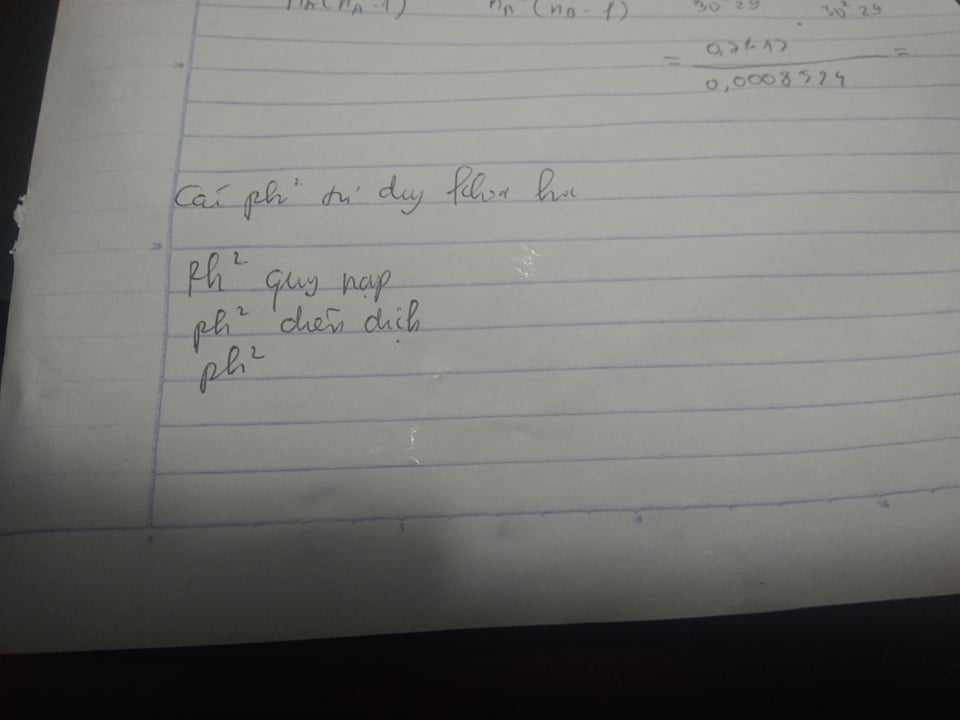 nA(nA-1) nB²(nB-1) 30²29 30².29
= 0,2612 / 0,0008524 =
Cai ph² tư duy khoa học
Ph² quy nạp
ph² diễn dịch
ph²